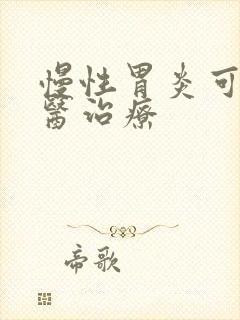 慢性胃炎可
醫治療
帝歌